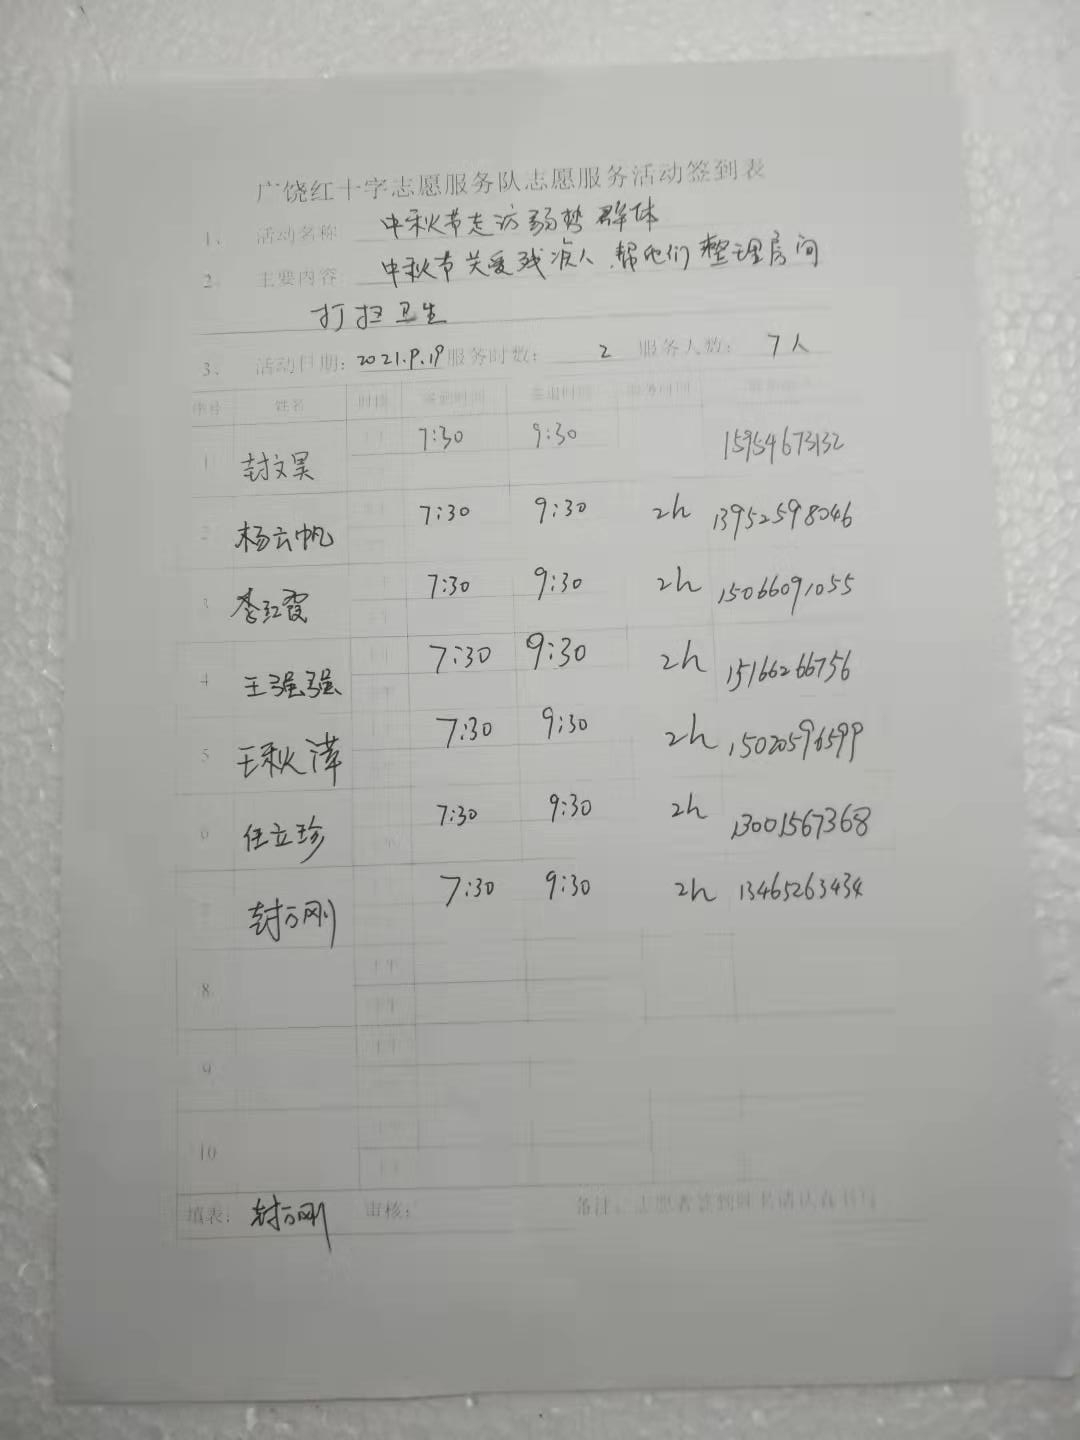 广饶红十字志愿服务队志愿服务活动签到表
1、 活动名称 中秋节走访弱势群体
2、 主要内容 中秋节关爱残疾人,帮他们整理房间
打扫卫生
3、 活动日期:2021.9.19 服务时数: 2 服务人数: 7人
序号 姓名 时段 签到时间 签退时间 服务时间
1 封文昊 7:30 9:30 15954673132
2 杨云帆 7:30 9:30 2h 13952598046
3 李红霞 7:30 9:30 2h 15066091055
4 王强强 7:30 9:30 2h 15166266756
5 王秋萍 7:30 9:30 2h 15020596599
6 任立珍 7:30 9:30 2h 13001567368
封万刚 7:30 9:30 2h 13465263434
8 上午
下午
9 上午
10
填表: 封万刚 审核: 备注:志愿者签到时请认真书写